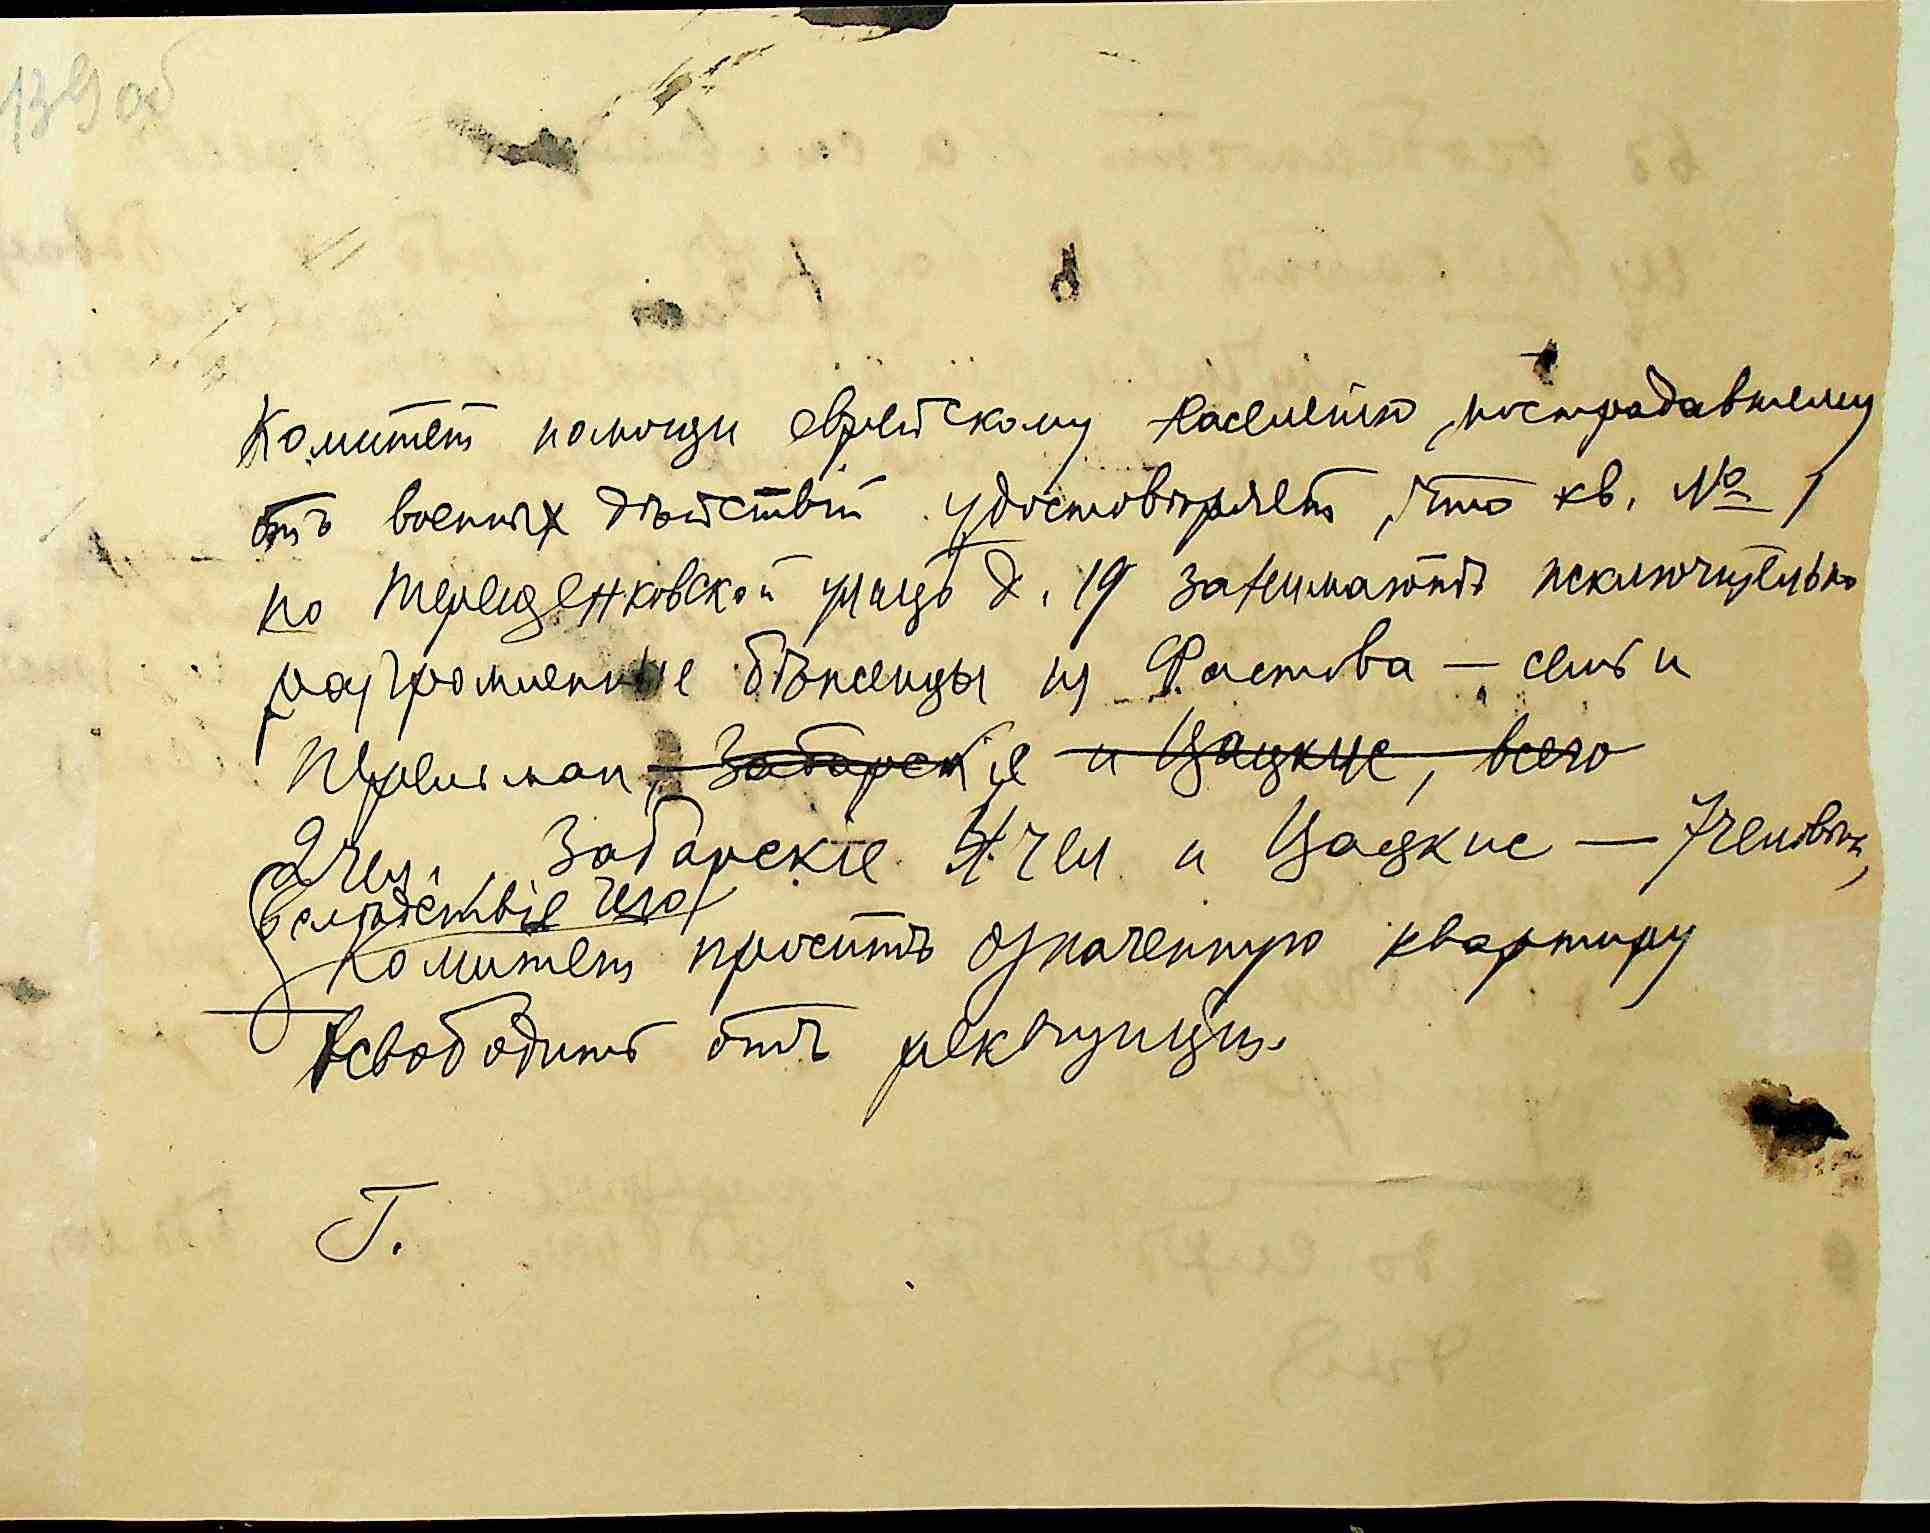 139 об
Комитет помощи еврейскому населенію, пострадавшему
отъ военных дѣйствій удостовѣряет, что кв. № 1
по Терещенковской улицѣ д. 19 занимаютъ исключительно
разгромленные бѣженцы из Фастова — семьи
Перельман, Забарскіе и Цацкис, всего
2 чел., Забарскіе 4 чел и Цацкис — 7 человѣк,
вслѣдствіе чего
Комитет проситъ означенную квартиру
освободить отъ реквизиціи.
Г.